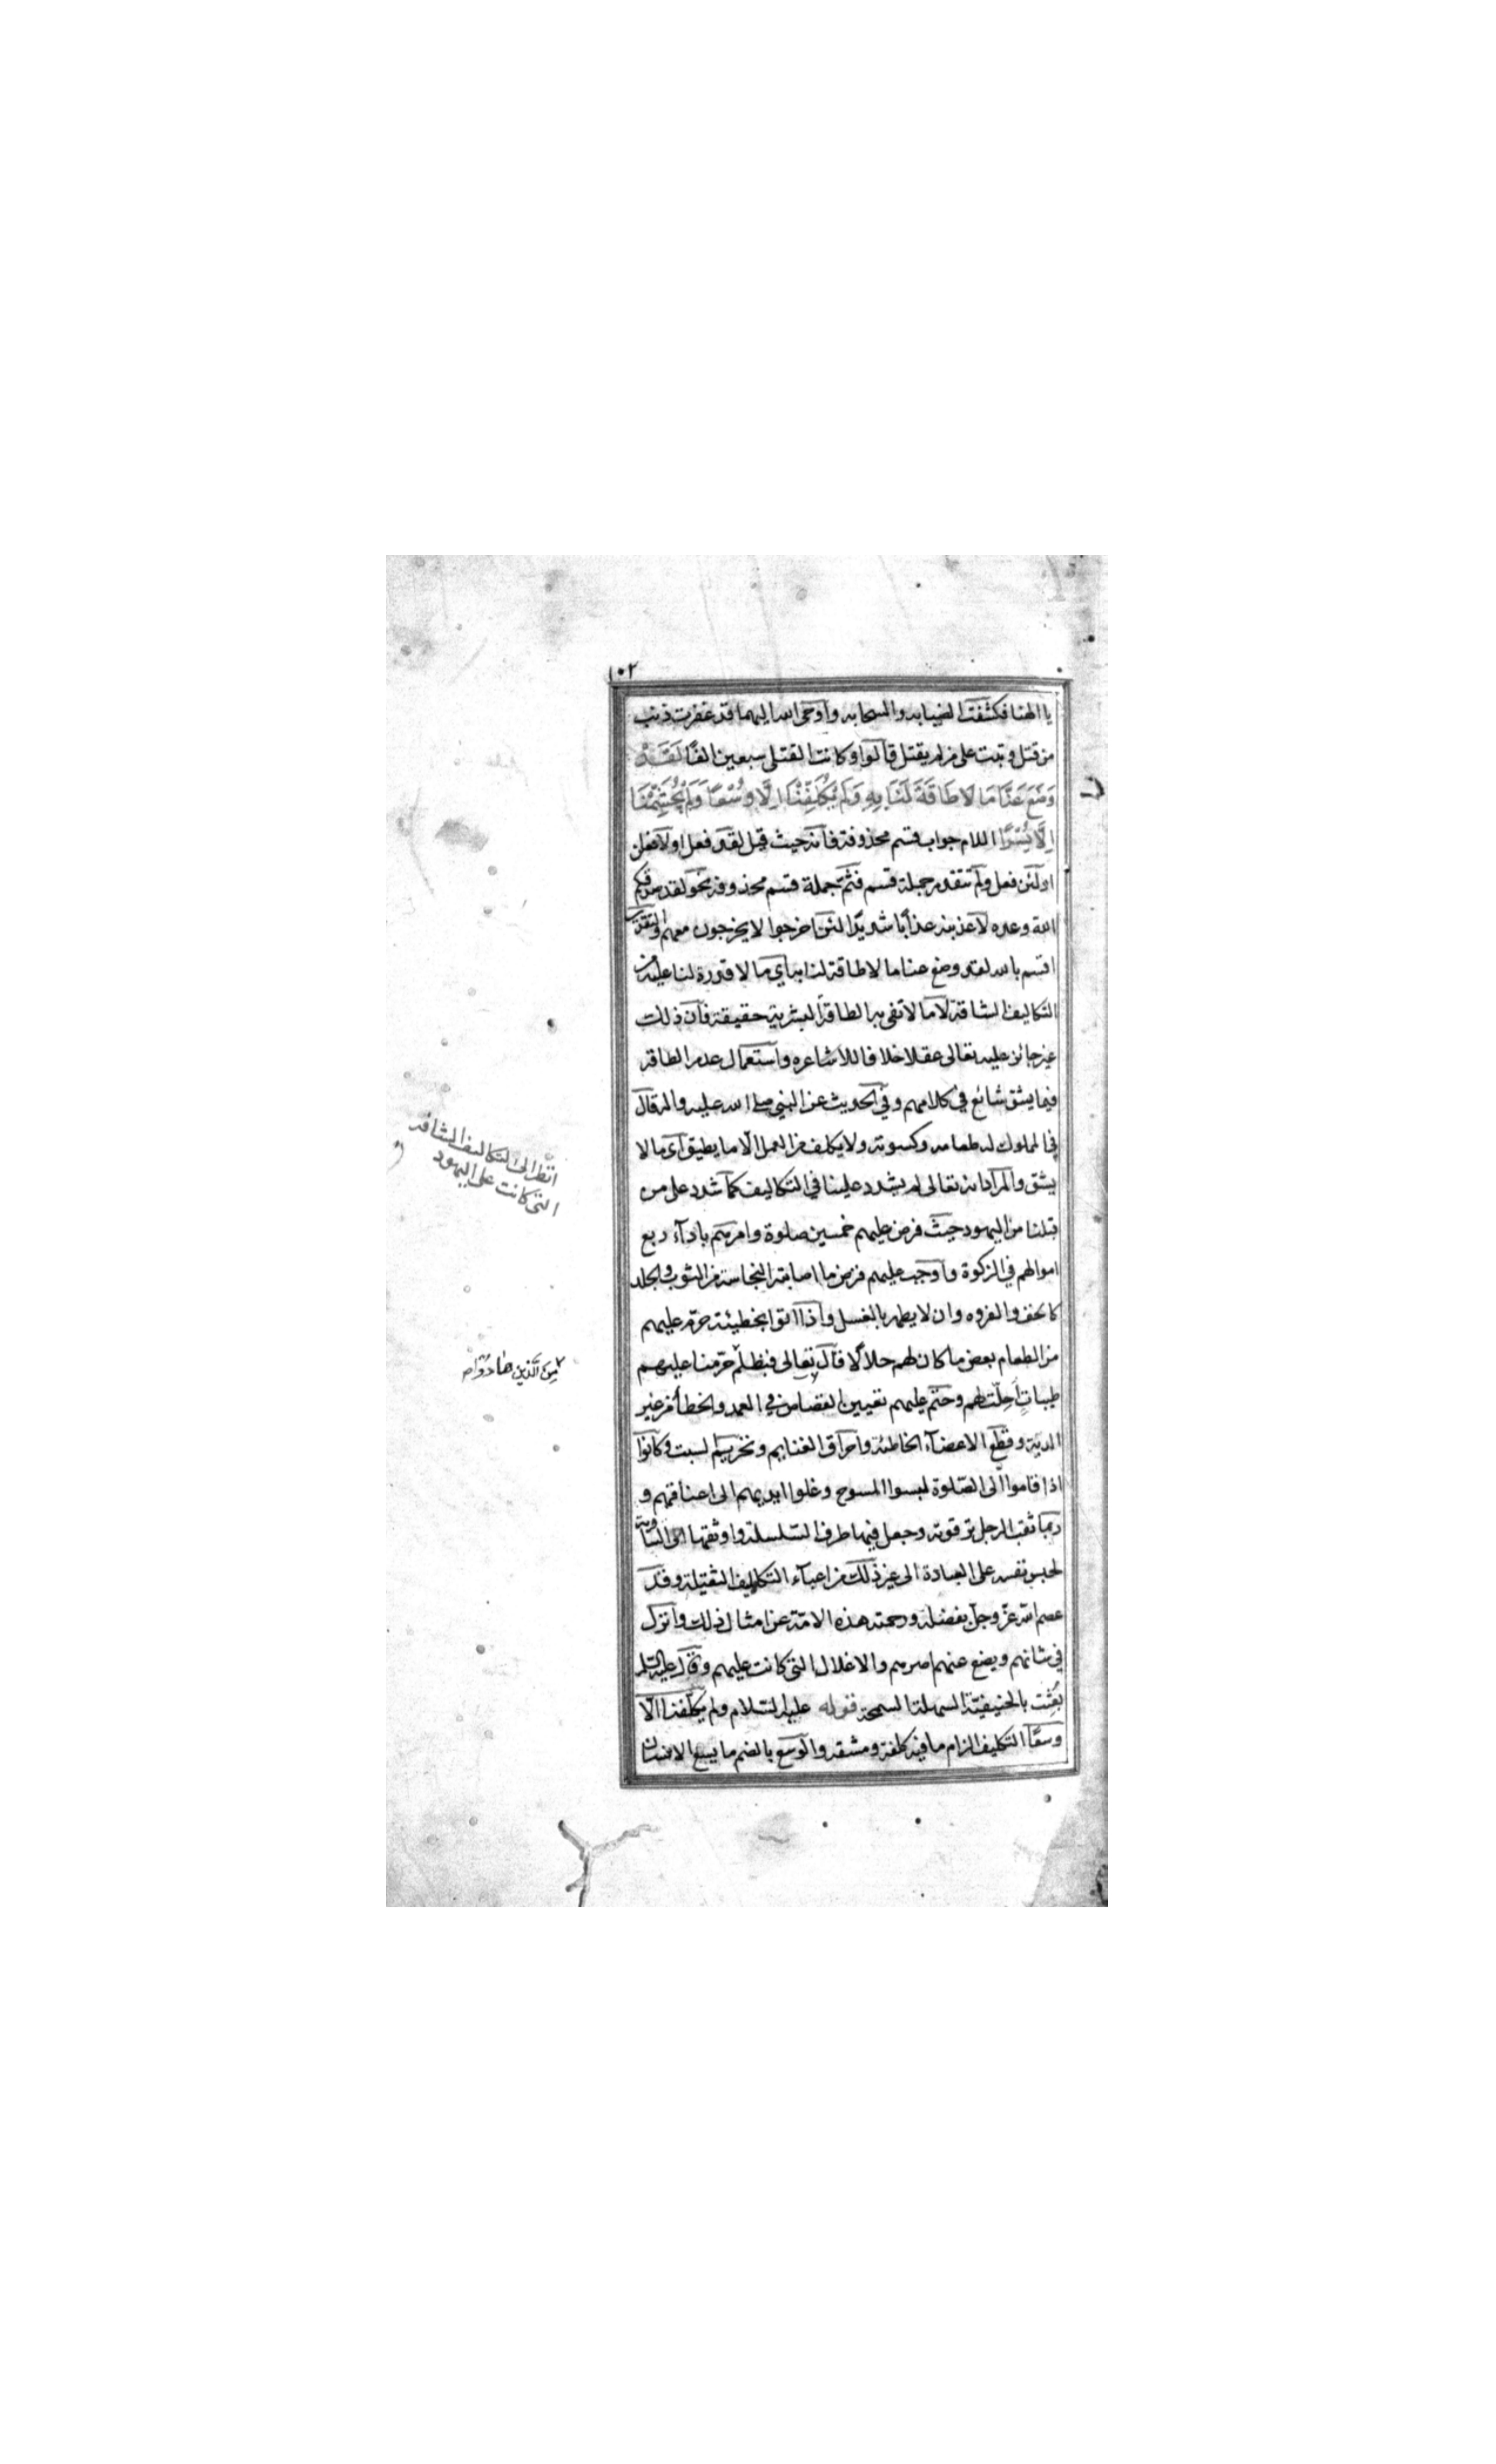 ١٠٢
يا الهنا فكشفت الضبابه والسحابه واوحى الله اليهما قد غفرت ذنب
من قتل وتبت على من لم يقتل قالوا وكانت القتلى سبعين الفا لَقَدْ
وَضَعَ عَنَّا مَا لَا طَاقَةَ لَنَا بِهِ وَلَمْ يُكَلِّفْنَا اِلَّا وُسْعًا وَلَمْ يُجَشِّمْنَا
اِلَّا يُسْرًا اللام جواب قسم محذوفة فانه حيث قيل لقد فعل او لافعلن
او لئن فعل ولم تتقدم جملة قسم فثم جملة قسم محذوفة نحو لقد صدقكم
الله وعده لاعذبنه عذابا شديدا لئن اخرجوا لا يخرجون معهم والتقدير
اقسم بالله لقد وضع عنا ما لا طاقة لنا به اي ما لا قدرة لنا عليه من
التكاليف الشاقة لا ما لا تفى به الطاقة البشرية حقيقة فان ذلك
غير جائز عليه تعالى عقلا خلافا للاشاعره واستعمال عدم الطاقة
فيما يشق شائع في كلامهم وفي الحديث عن النبي صلى الله عليه واله قال
في المملوك له طعامه وكسوته ولا يكلف من العمل الا ما يطيق اى ما لا
يشق والمراد انه تعالى لم يشدد علينا في التكاليف كما شدد على من
قبلنا من اليهود حيث فرض عليهم خمسين صلوة وامرهم باداء ربع
اموالهم في الزكوة واوجب عليهم قرض ما اصابته النجاسة من الثوب والجلد
كالخف والفروه وان لا يطهر بالغسل واذا اتوا بخطيئة حرم عليهم
من الطعام بعض ما كان لهم حلالا قال تعالى فبظلم حرمنا عليهم
طيباتٍ اُحِلّت لهم وحتم عليهم تعيين القصاص في العمد والخطأ من غير
الدية وقطع الاعضاء الخاطئة واحراق الغنايم وتحريم السبت وكانوا
اذا قاموا الى الصّلوة لبسوا المسوح وغلوا ايديهم الى اعناقهم و
ربما ثقب الرجل ترقوته وجعل فيها طرف السّلسلة واوثقها الى السارية
لحبس نفسه على العبادة الى غير ذلك من اعباء التكاليف الثقيلة وقد
عصم الله عزّ وجلّ بفضله ورحمته هذه الامّة عن امثال ذلك وانزل
في شانهم ويضع عنهم اصرهم والاغلال التي كانت عليهم وقال عليه السلم
بُعِثت بالحنيفيّة السهلة السمحة قوله عليه السّلام ولم يكلفنا الّا
وسعًا التكليف الزام ما فيه كلفة ومشقه والوسع بالضم ما يسع الانسان
انظر الى التكاليف الشاقه
التي كانت على اليهود
مِنَ الَّذين هَادُوا